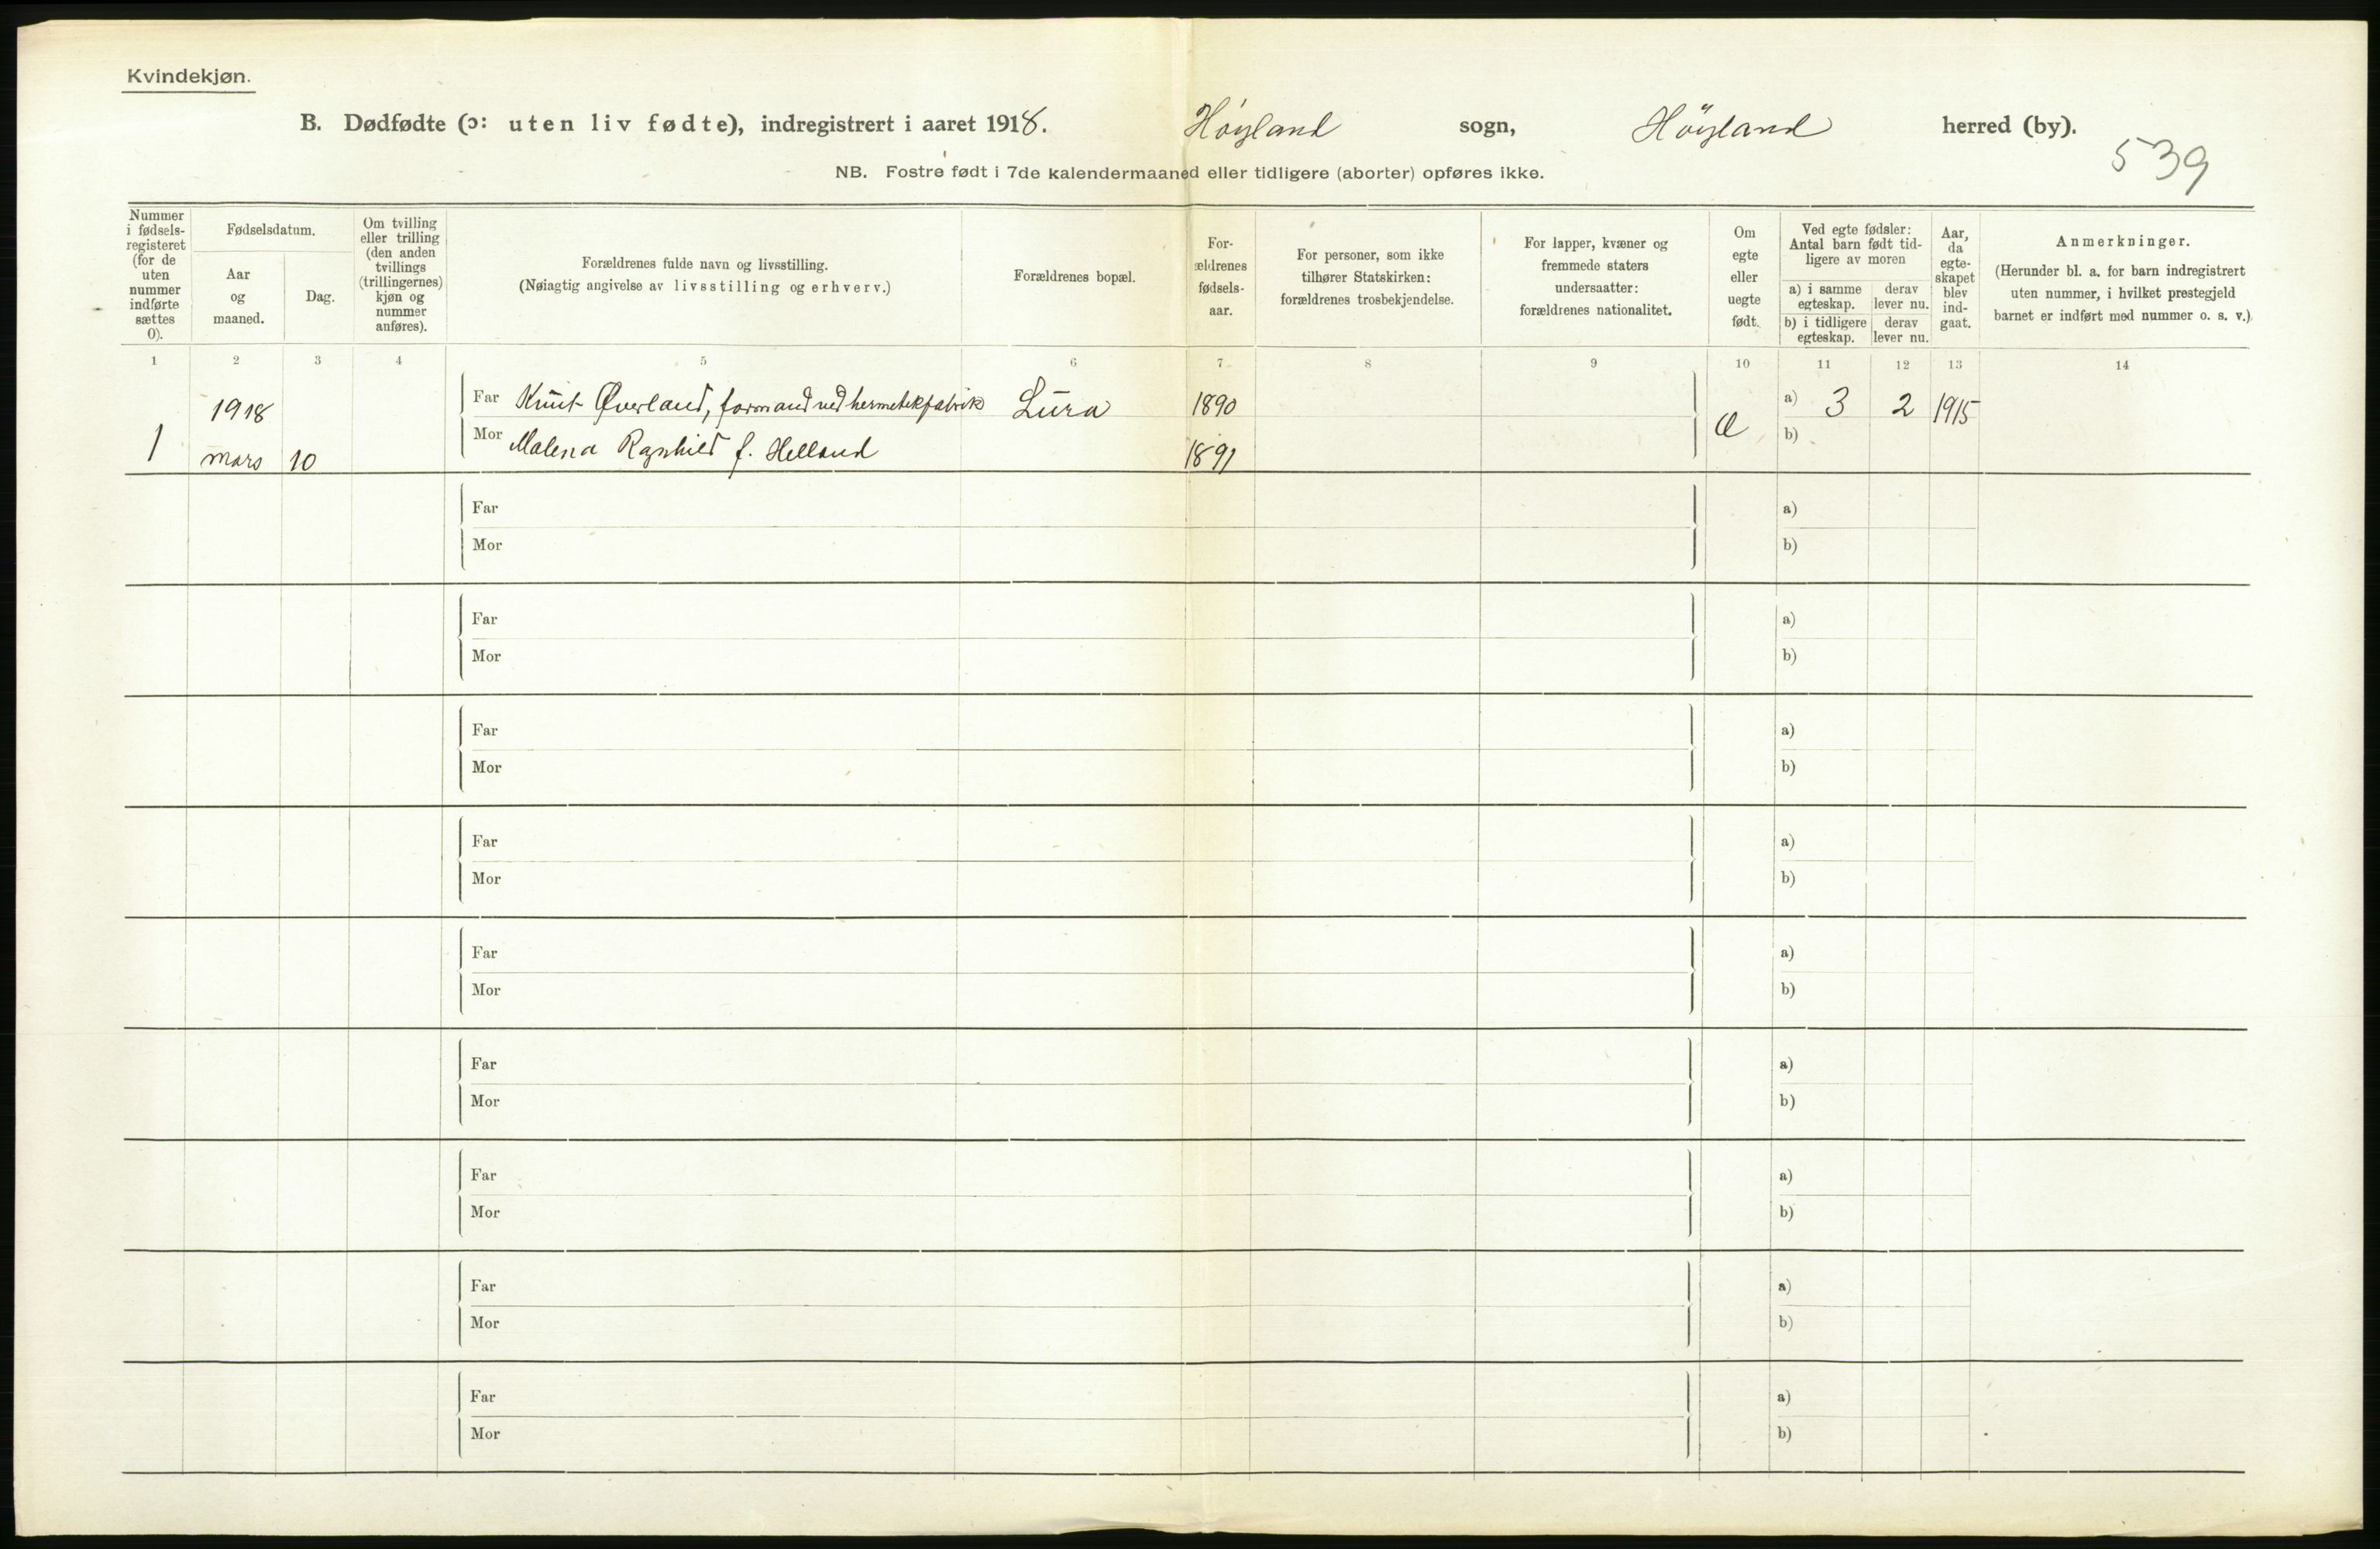 Kvindekjøn.
B. Dødfødte (ɔ: uten liv fødte), indregistrert i aaret 1918. Höyland sogn, Höyland herred (by).
539
NB. Fostre født i 7de kalendermaaned eller tidligere (aborter) opføres ikke.
Nummer
i fødsels-
registeret
(for de
uten
nummer
indførte
sættes
0).
Fødselsdatum.
Aar
og
maaned.
Dag.
Om tvilling
eller trilling
(den anden
tvillings
(trillingernes)
kjøn og
nummer
anføres).
Forældrenes fulde navn og livsstilling.
(Nøiagtig angivelse av livsstilling og erhverv.)
Forældrenes bopæl.
For-
ældrenes
fødsels-
aar.
For personer, som ikke
tilhører Statskirken:
forældrenes trosbekjendelse.
For lapper, kvæner og
fremmede staters
undersaatter:
forældrenes nationalitet.
Om
egte
eller
uegte
født.
Ved egte fødsler:
Antal barn født tid-
ligere av moren
a) i samme
egteskap.
derav
lever nu.
b) i tidligere
egteskap.
derav
lever nu.
Aar,
da
egte-
skapet
blev
ind-
gaat.
Anmerkninger.
(Herunder bl. a. for barn indregistrert
uten nummer, i hvilket prestegjeld
barnet er indført med nummer o. s. v.)
1 2 3 4 5 6 7 8 9 10 11 12 13 14
1918 Far Knut Øverland, formand ved hermetikfabrik Lura 1890 a) 3 2 1915
1 mars 10 Mor Malena Ragnhild f. Helland 1891 b)
Far a)
Mor b)
Far a)
Mor b)
Far a)
Mor b)
Far a)
Mor b)
Far a)
Mor b)
Far a)
Mor b)
Far a)
Mor b)
Far a)
Mor b)
Far a)
Mor b)